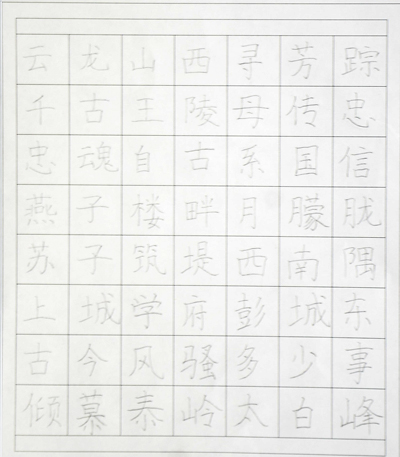 云龙山西寻芳踪
千古王陵母传忠
忠魂自古系国信
燕子楼畔月朦胧
苏子筑堤西南隅
上城学府彭城东
古今风骚多少事
倾慕泰岭太白峰